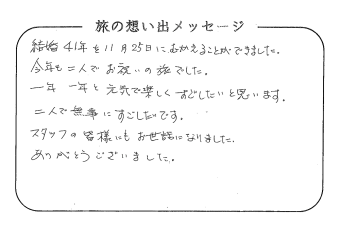 旅の想い出メッセージ
結婚41年を11月25日にむかえることができました。
今年も二人でお祝いの旅でした。
一年 一年と元気で楽しくすごしたいと思います。
二人で無事にすごしたいです。
スタッフの皆様にもお世話になりました。
ありがとうございました。